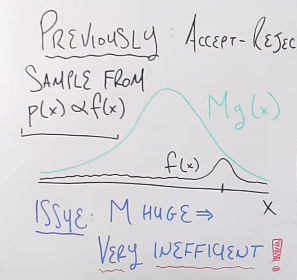 PREVIOUSLY: ACCEPT-REJEC
SAMPLE FROM
p(x) ∝ f(x)
Mg(x)
f(x)
X
ISSUE: M HUGE ⇒
VERY INEFFICIENT!